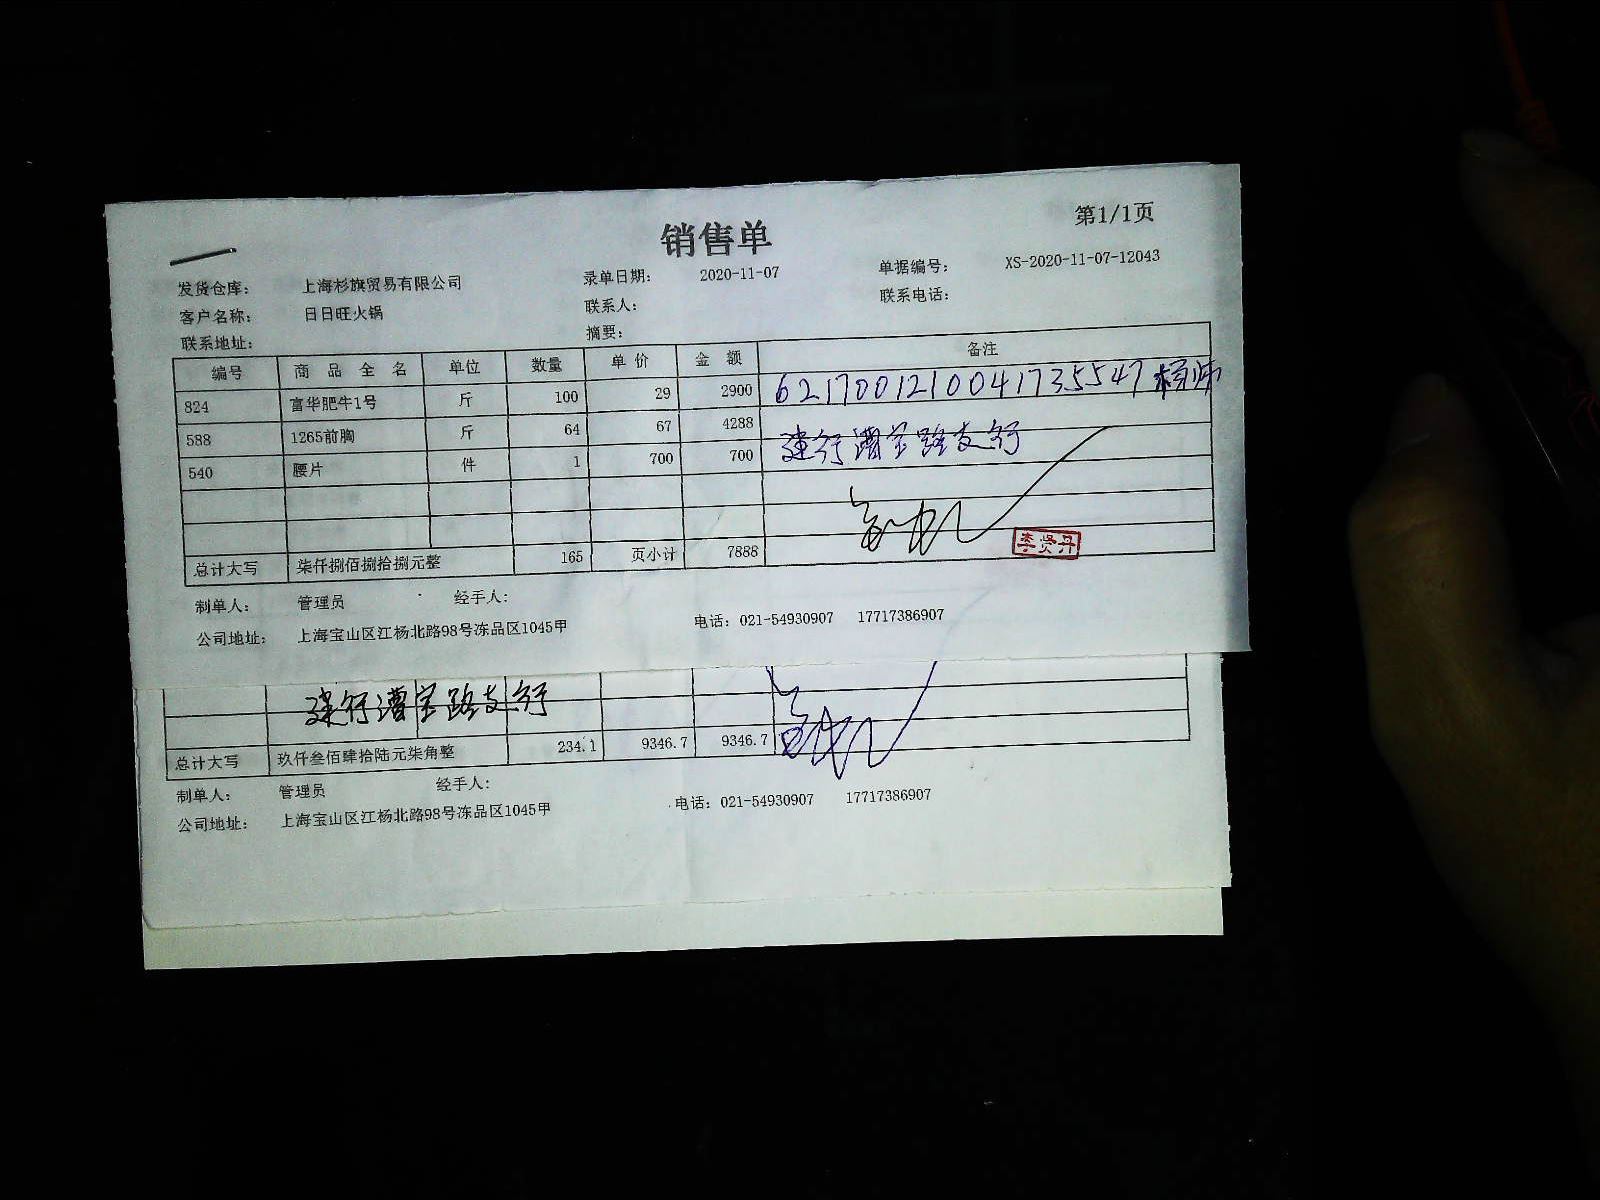 销售单
第1/1页
发货仓库: 上海杉旗贸易有限公司 录单日期: 2020-11-07 单据编号: XS-2020-11-07-12043
客户名称: 日日旺火锅 联系人: 联系电话:
联系地址: 摘要:
编号 商品全名 单位 数量 单价 金额 备注
824 富华肥牛1号 斤 100 29 2900 6217001210041735547
588 1265前胸 斤 64 67 4288
540 腰片 件 1 700 700 建行漕宝路支行
总计大写 柒仟捌佰捌拾捌元整 165 页小计 7888
李贤丹
制单人: 管理员 经手人:
公司地址: 上海宝山区江杨北路98号冻品区1045甲 电话: 021-54930907 17717386907
建行漕宝路支行
总计大写 玖仟叁佰肆拾陆元柒角整 234.1 9346.7 9346.7
制单人: 管理员 经手人:
公司地址: 上海宝山区江杨北路98号冻品区1045甲 电话: 021-54930907 17717386907